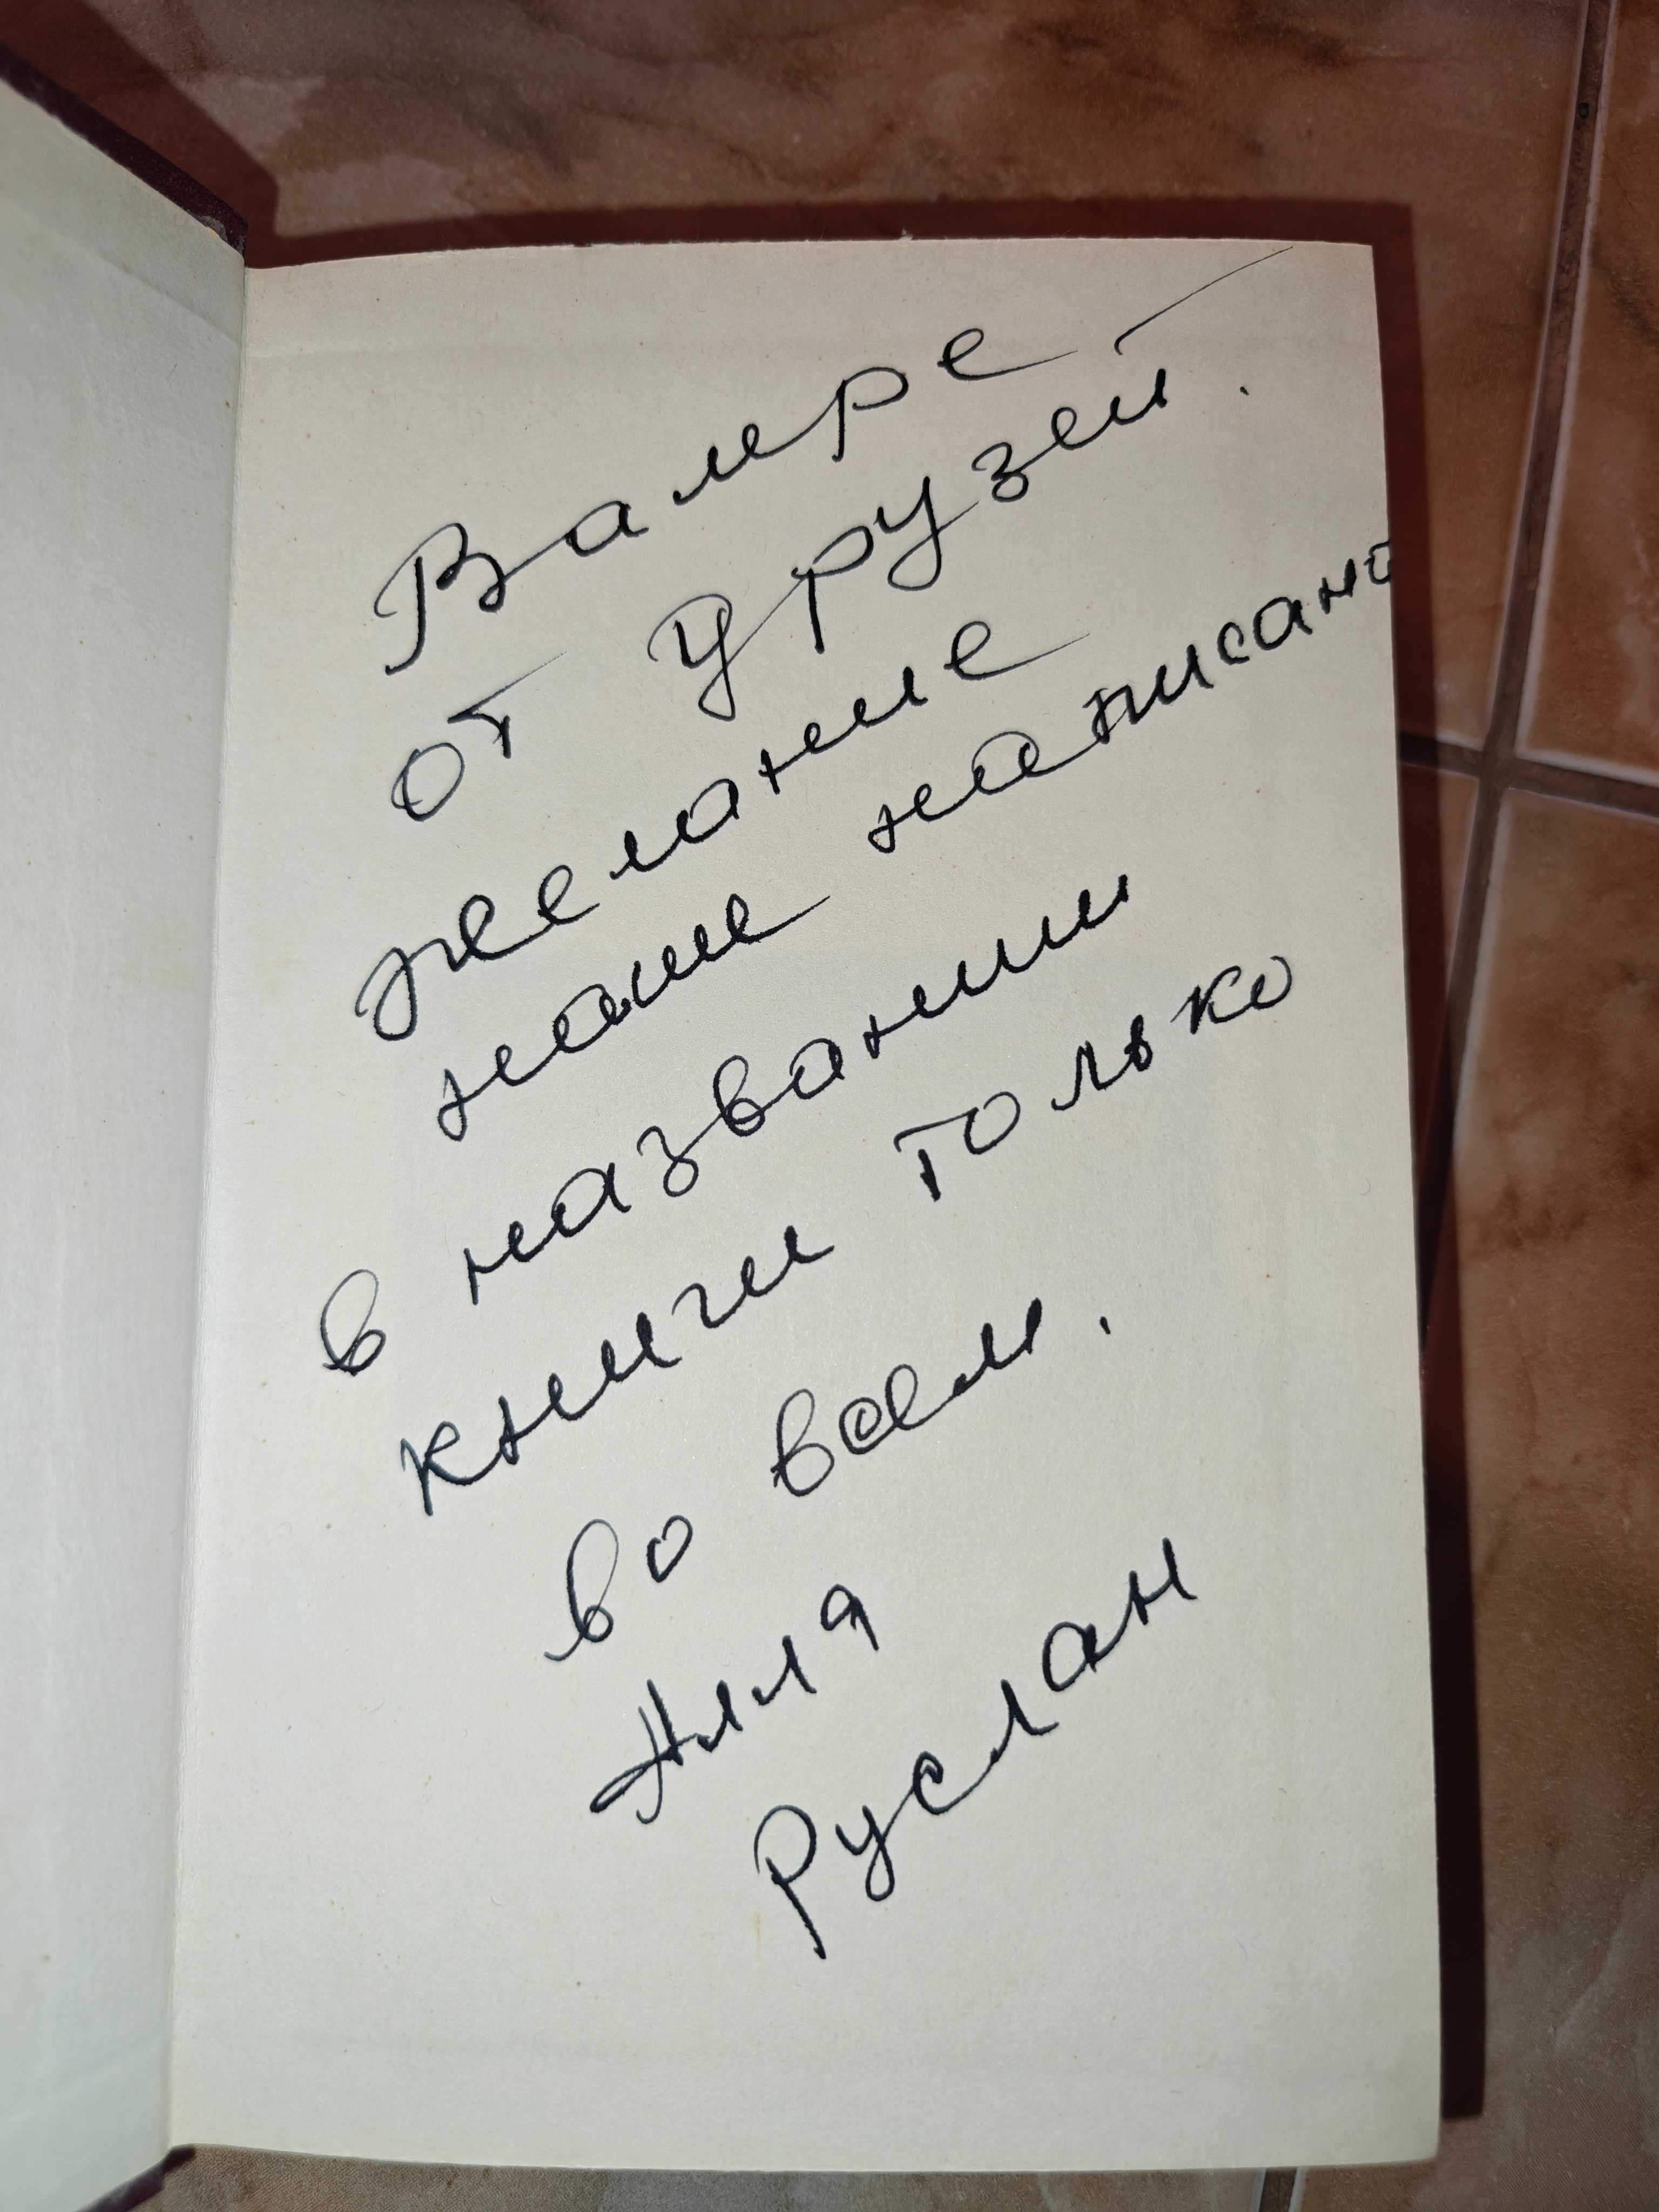 Вамре
от друзей.
желание
наше написано
в названии
книги только
во всем.
Неля
Руслан